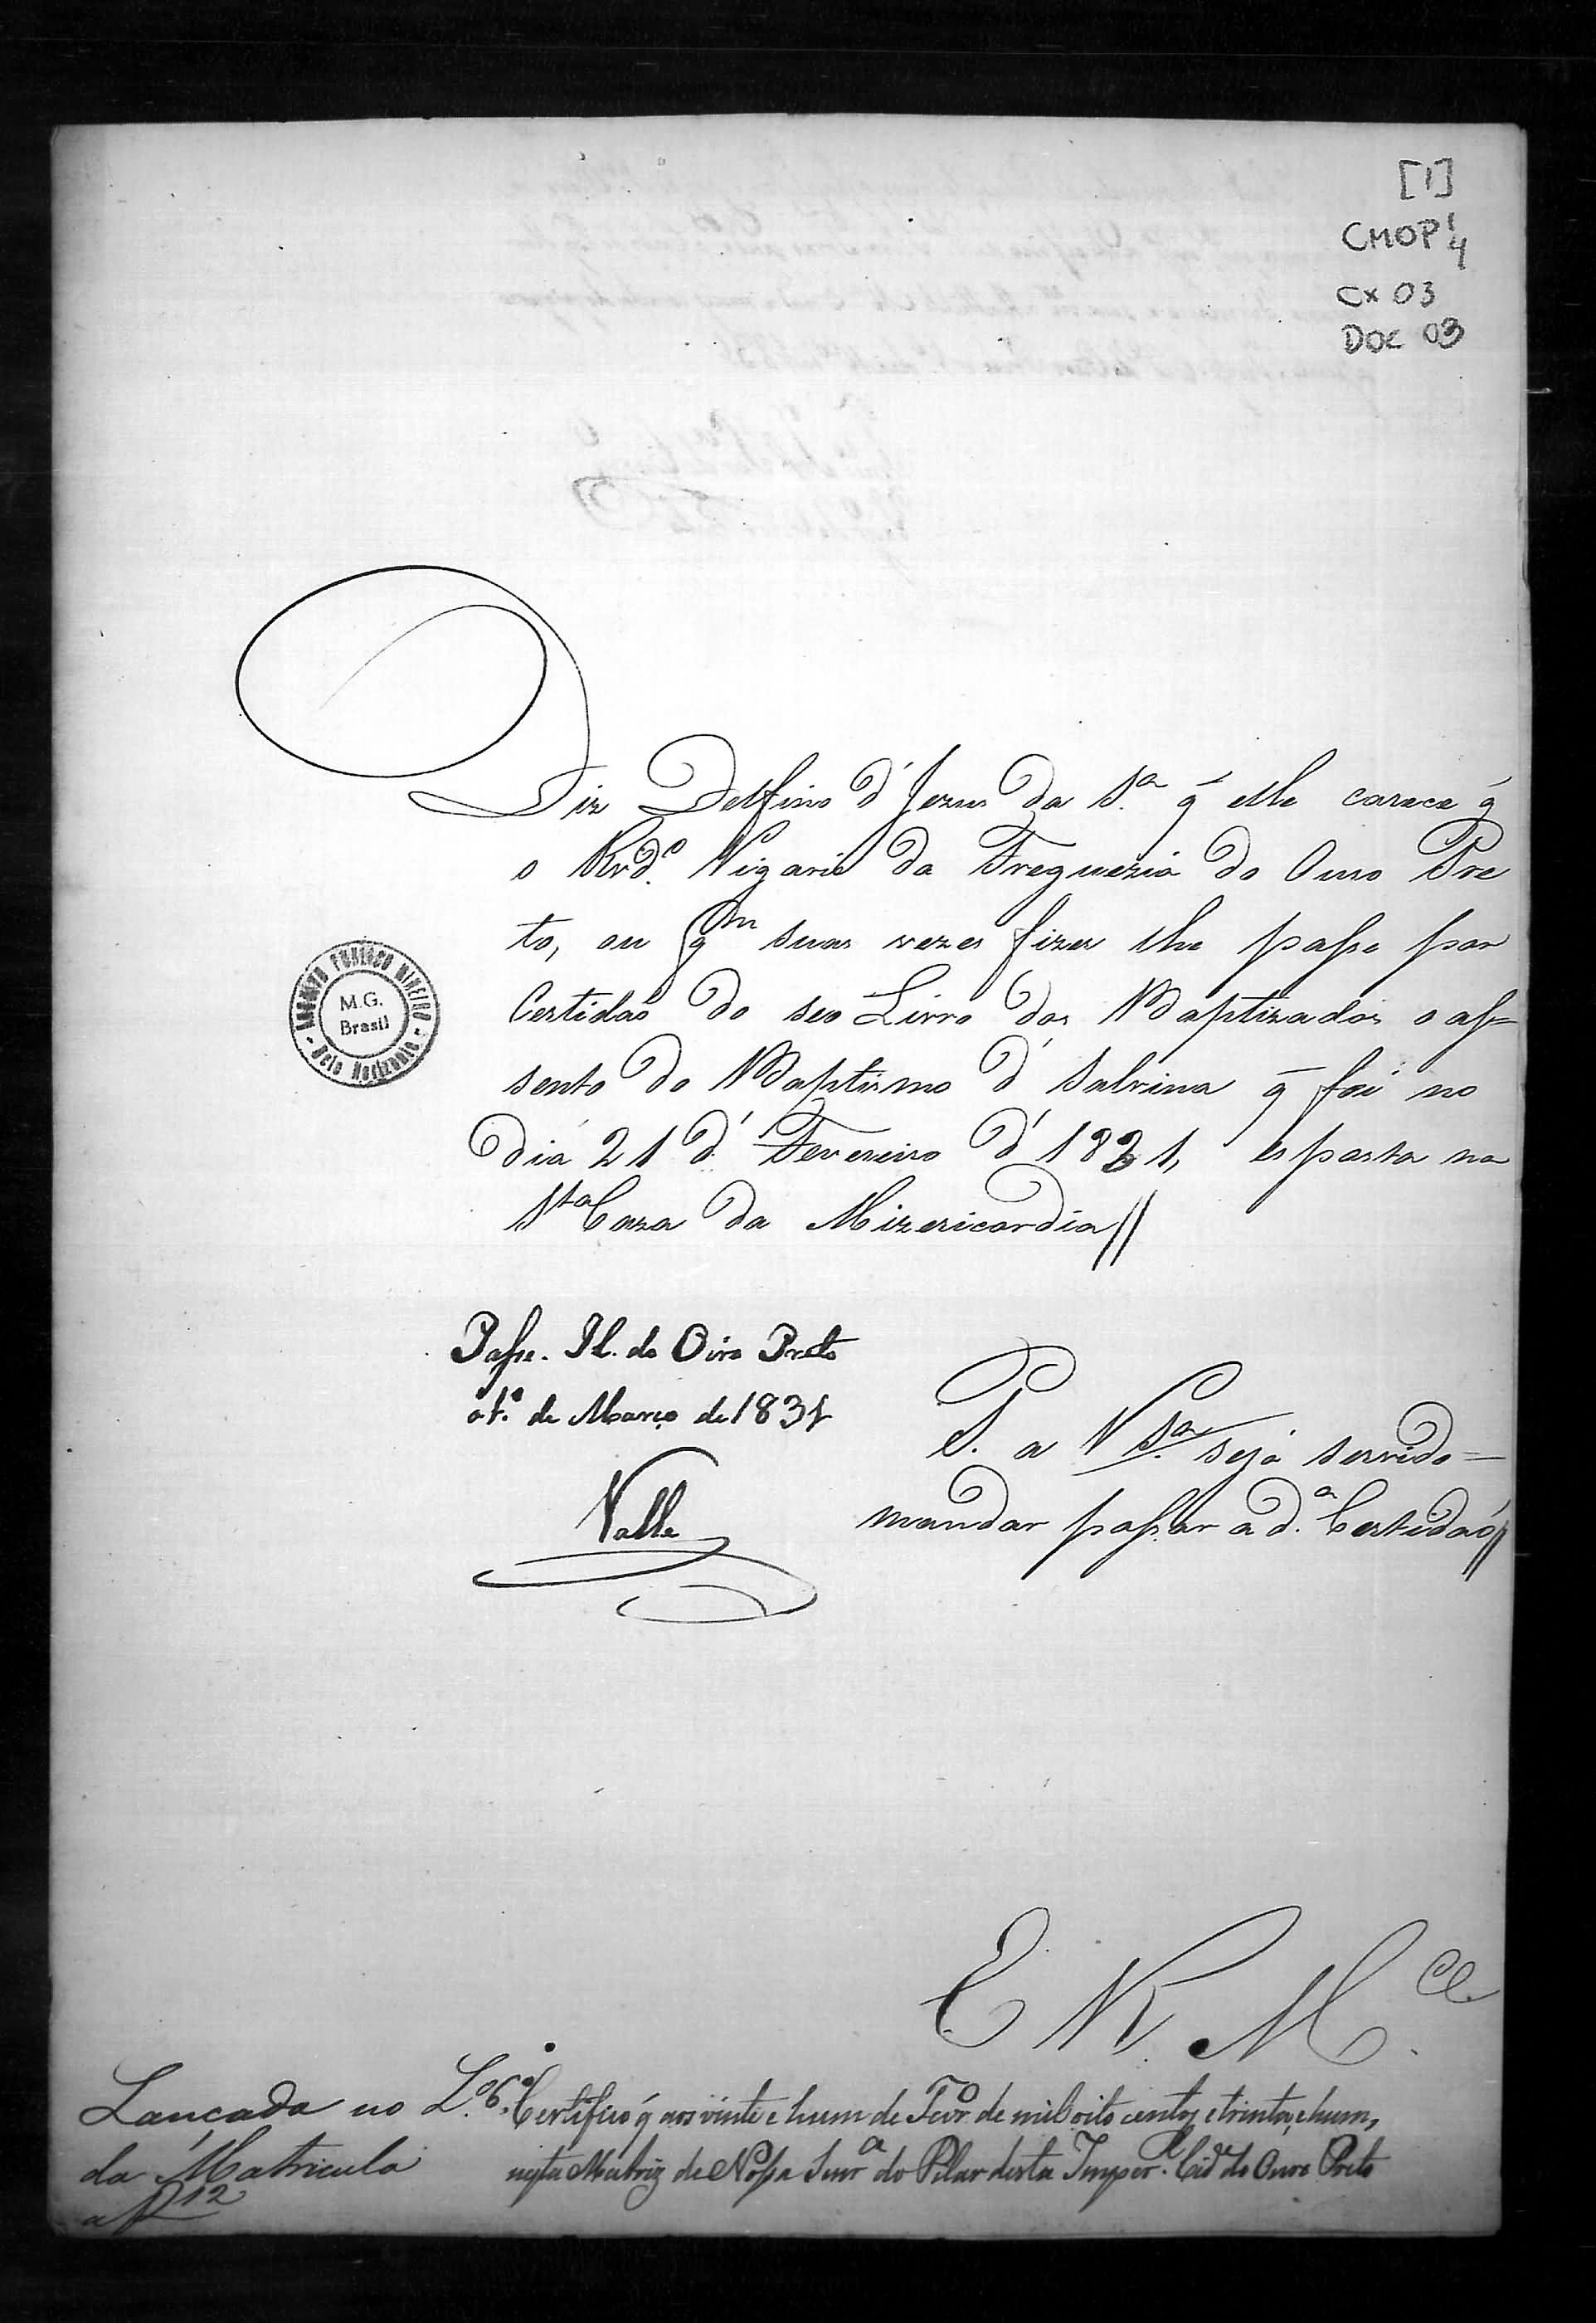 [1]
CMOP 1/4
CX 03
DOC 03
Diz Delfino d' Jezus da S.ª q̃ elle carece q̃
o Rvd.º Vigario da Freguezia do Ouro Pre
to, ou q̃m suas vezes fizer lhe passe por
Certidaõ do seo Livro dos Baptizados o as=
sento do Baptismo d' Sabrina q̃ foi no
dia 21 d' Fevereiro d' 1831, esposta na
Sta Caza da Mizericordia//
ARQUIVO PUBLICO MINEIRO
M.G.
Brasil
- Belo Horizonte -
Passe. Il. do Oiro Preto
o 1.º de Março de 1831
Valle
P. a V Sª. seja servido=
mandar passar a d.ª Certidaõ//
E R. M.ce
Lançada no L.º 6.º
da Matricula
a f 12
Certifico q̃ aos vinte e hum de Fevrº de mil oito centos e trinta, e hum,
nesta Matriz de Nossa Senrª do Pilar desta Imper.l Cide do Ouro Preto